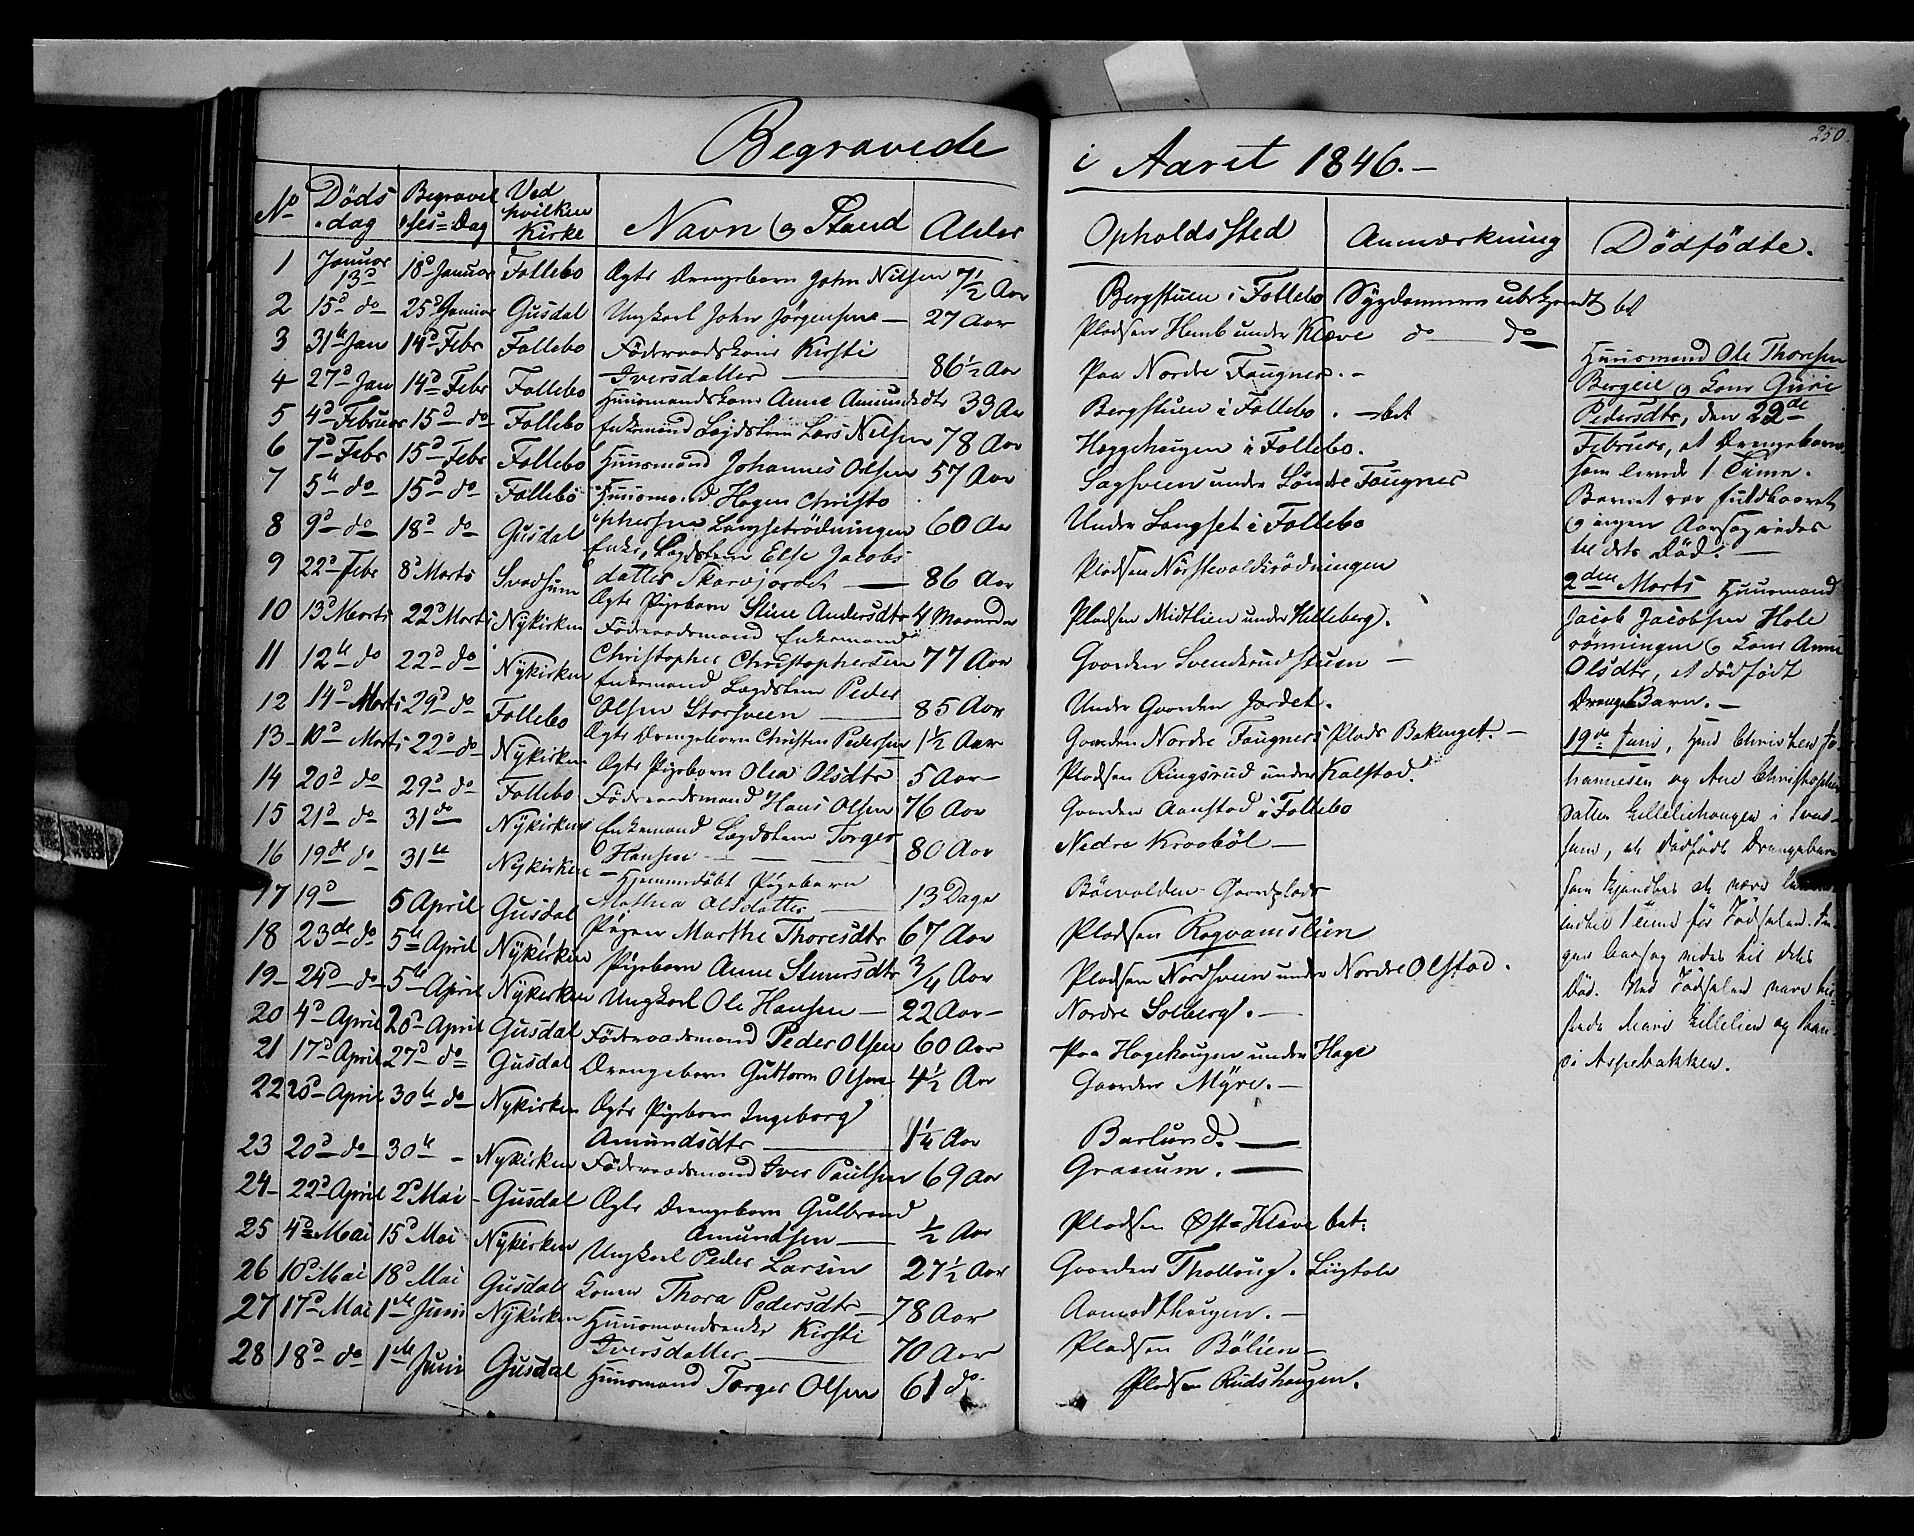 250.
Begravede i Aaret 1846.-
No Döds dag Begravel ses=Dag Ved hvilken Kirke Navn og Stand Alder Opholdssted Anmærkning Dödfödte.
1 Januar 13d 18d Januar Follebo Ægte Drengebarn John Nilsen 7 1/2 Aar Bergstuen i Follebo Sygdommen ubekjendt bet
2 15d do 25d Januar Gusdal Ungkarl John Jörgensen - 27 Aar Pladsen Hemb under Klæve do do
3 31te Jan 14d Febr Follebo Föderaadskone Kirsti Iversdatter 86 1/2 Aar Paa Nordre Faugner.-
4 27d Jan 14d Febr Follebo Huusmandskone Anne Amundsdtr 39 Aar Bergstuen i Follebo. - bet
5 4d Februar 15d do Follebo Enkemand Lægdslem Lars Nilsen 78 Aar Heggehaugen i Follebo.
6 7d Febr 15d Febr Follebo Huusmand Johannes Olsen 57 Aar Sagsveen under Söndre Faugner
7 5te do 15d do Follebo Huusmand Hagen Christo
8 9d do 18d do Gusdal phersen Langsetrödningen 60 Aar Under Langset i Follebo
9 22d Febr 8d Marts Svadsum Enke, Lægdslem Else Jacobs datter Skarvjordet 86 Aar Pladsen Nörstevoldsrödningen
10 13d Marts 22d Marts Nykirken Ægte Pigebarn Stine Andersdtr 4 Maaneder Pladsen Midtlien under Helleberg.
11 12te do 22d do Nykirken Föderaadsmand Enkemand Christopher Christophersen 77 Aar Gaarden Svendsrudstuen -
12 14d Marts 29d do Follebo Enkemand Lægdslem Peder Olsen Storsveen 85 Aar Under Gaarden Jordet.
13 - 10d Marts 22d do Nykirken Ægte Drengebarn Christen Pedersen 1 1/2 Aar Gaarden Nordre Faugners Plads Bakenget. -
14 20d do 29d do Follebo Ægte Pigebarn Olea Olsdtr 5 Aar Pladsen Ringsrud under Kalstad.
15 21d do 31 do Nykirken Föderaadsmand Hans Olsen 76 Aar Gaarden Aanstad i Follebo
16 19de do 31te Nykirken Enkemand Lægdslem Torger Hansen 80 Aar Nedre Kraaböl -
17 19d 5 April Gusdal Hjemmedöbt Pigebarn Mathea Olsdatter 13 Dage Böevolden Gaardplads
18 23de do 5te April Nykirken Pigen Marthe Thoresdtr 67 Aar Pladsen Rogvamslien
19 - 24d do 5te April Nykirken Pigebarn Anne Simersdtr 3/4 Aar Pladsen Nordsveen under Nordre Olstad.
20 4d April 20d April Gusdal Ungkarl Ole Hansen - 22 Aar - Nordre Solberg. -
21 17d April 27d do Gusdal Föderaadsmand Peder Olsen 60 Aar Paa Hagehaugen under Hage
22 20d April 30te do Nykirken Drengebarn Guttorm Olsen 4 1/2 Aar Gaarden Myre. -
23 20d do 30te - Nykirken Ægte Pigebarn Ingeborg Amundsdtr 1 1/4 Aar Barlund. -
24 - 22d April 2d Mai - Gusdal Föderaadsmand Iver Paulsen 69 Aar Graaum. -
25 4d Mai 15d Mai Nykirken Ægte Drengebarn Gulbrand Amundsen 1/2 Aar Pladsen Öst=Klæve bet:
26 10d Mai 18d Mai Gusdal Ungkarl Peder Larsen 27 1/2 Aar Gaarden Thallaug. Liigtale
27 17d Mai 1ste Juni Nykirken Konen Thora Pedersdtr 78 Aar Aamodthaugen. -
28 18d do 1ste Juni Gusdal Huusmandsenke Kirsti Iversdatter 70 Aar Pladsen Bölien -
Huusmand Torger Olsen 61 do Pladsen Rudshaugen.
Huusmand Ole Thoresen
Bergeie og Kone Guri
Pedersdtr, den 22de
Februar, et Drengebarn
som levede 1 Time.
Barnet var fuldbaaret
og ingen Aarsag vides
til dets Död. -
2den Marts Huusmand
Jacob Jacobsen Hole
rönningen og Kone Anne
Olsdtr, et dödfödt
Drenge Barn. -
19de Juni, Hmd Christen Jo-
hannesen og Ane Christophers
datter Lillelienhaugen i Svad-
sum, et dödfödt Drengebarn
som kjendtes at være
indtil 1 Time för Födselen. In-
gen Aarsag vides til dets
Död. Ved Födselen vare
stede Mari Lillelien og
i Aspebakken.